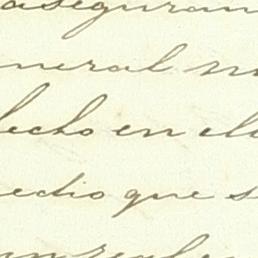 aseguran
neral m
hecho en el
edio que s